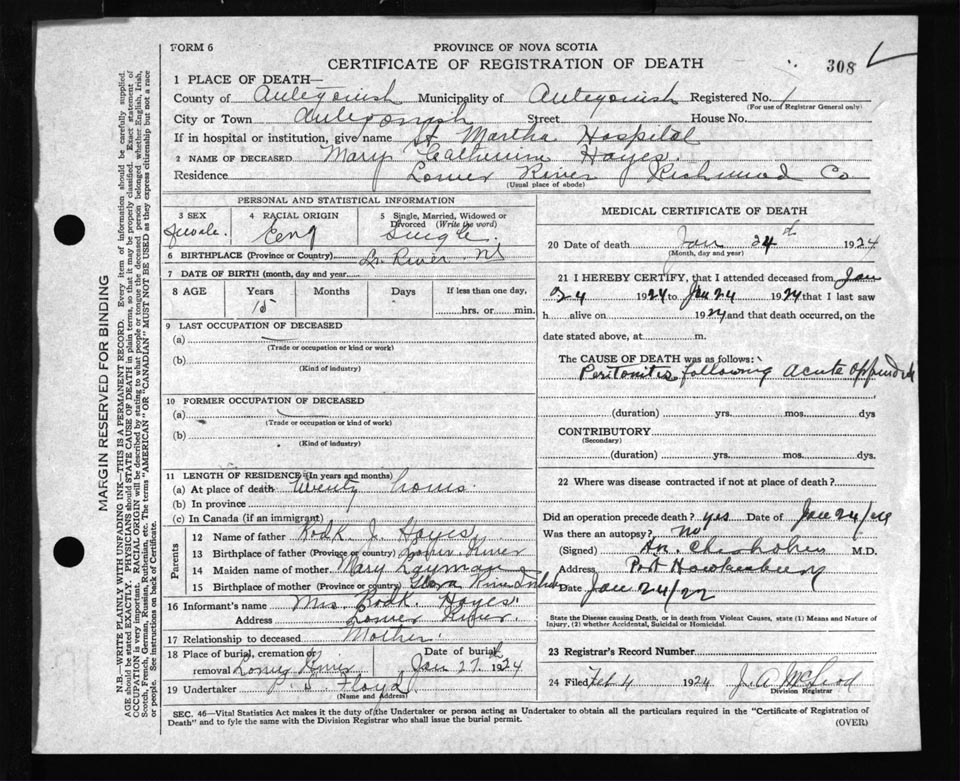 FORM 6
PROVINCE OF NOVA SCOTIA
CERTIFICATE OF REGISTRATION OF DEATH
308
1 PLACE OF DEATH—
County of Antigonish Municipality of Antigonish Registered No. 1
(For use of Registrar General only)
City or Town Antigonish Street House No.
If in hospital or institution, give name St Martha Hospital
2 NAME OF DECEASED Mary Catherine Hayes.
Residence Lower River Richmond Co
(Usual place of abode)
PERSONAL AND STATISTICAL INFORMATION
3 SEX
Female.
4 RACIAL ORIGIN
Eng
5 Single, Married, Widowed or Divorced (Write the word)
Single.
6 BIRTHPLACE (Province or Country) Lr. River. NS
7 DATE OF BIRTH (month, day and year)
8 AGE Years Months Days If less than one day,
15 hrs. or min.
9 LAST OCCUPATION OF DECEASED
(a)
(Trade or occupation or kind or work)
(b)
(Kind of industry)
10 FORMER OCCUPATION OF DECEASED
(a)
(Trade or occupation or kind of work)
(b)
(Kind of industry)
11 LENGTH OF RESIDENCE (In years and months)
(a) At place of death twenty hours.
(b) In province
(c) In Canada (if an immigrant)
Parents
12 Name of father Rodk. J. Hayes
13 Birthplace of father (Province or country) Lower River
14 Maiden name of mother Mary Layman
15 Birthplace of mother (Province or country) River
16 Informant's name Mrs. Rodk. Hayes
Address Lower River.
17 Relationship to deceased Mother.
18 Place of burial, cremation or removal Lower River
Date of burial Jan 27. 1924
19 Undertaker Floyd.
(Name and Address)
MEDICAL CERTIFICATE OF DEATH
20 Date of death Jan 24th 1924
(Month, day and year)
21 I HEREBY CERTIFY, that I attended deceased from Jan
24 1924 to Jan 24 1924 that I last saw
h alive on 1924 and that death occurred, on
date stated above, at m.
The CAUSE OF DEATH was as follows:
Peritonitis following acute
(duration) yrs. mos. dys
CONTRIBUTORY
(Secondary)
(duration) yrs. mos. dys.
22 Where was disease contracted if not at place of death?
Did an operation precede death? yes Date of Jan 24/24
Was there an autopsy? no
(Signed) Chisholm M.D.
Address Port Hawkesbury
Date Jan 24/22
State the Disease causing Death, or in death from Violent Causes, state (1) Means and Nature of
Injury, (2) whether Accidental, Suicidal or Homicidal.
23 Registrar's Record Number
24 Filed Feb 4 1924 J. A. McLeod
Division Registrar
SEC. 46—Vital Statistics Act makes it the duty of the Undertaker or person acting as Undertaker to obtain all the particulars required in the "Certificate of Registration of
Death" and to fyle the same with the Division Registrar who shall issue the burial permit.
(OVER)
MARGIN RESERVED FOR BINDING
N.B.—WRITE PLAINLY WITH UNFADING INK—THIS IS A PERMANENT RECORD. Every item of information should be carefully supplied.
AGE should be stated EXACTLY. PHYSICIANS should STATE CAUSE OF DEATH in plain terms, so that it may be properly classified. Exact statement of
OCCUPATION is very important. RACIAL ORIGIN will be described by stating to what people or tongue the deceased person belonged whether English, Irish,
Scotch, French, German, Russian, Ruthenian, etc. The terms "AMERICAN" OR "CANADIAN" MUST NOT BE USED as they express citizenship but not a race
or people. See instructions on back of Certificate.